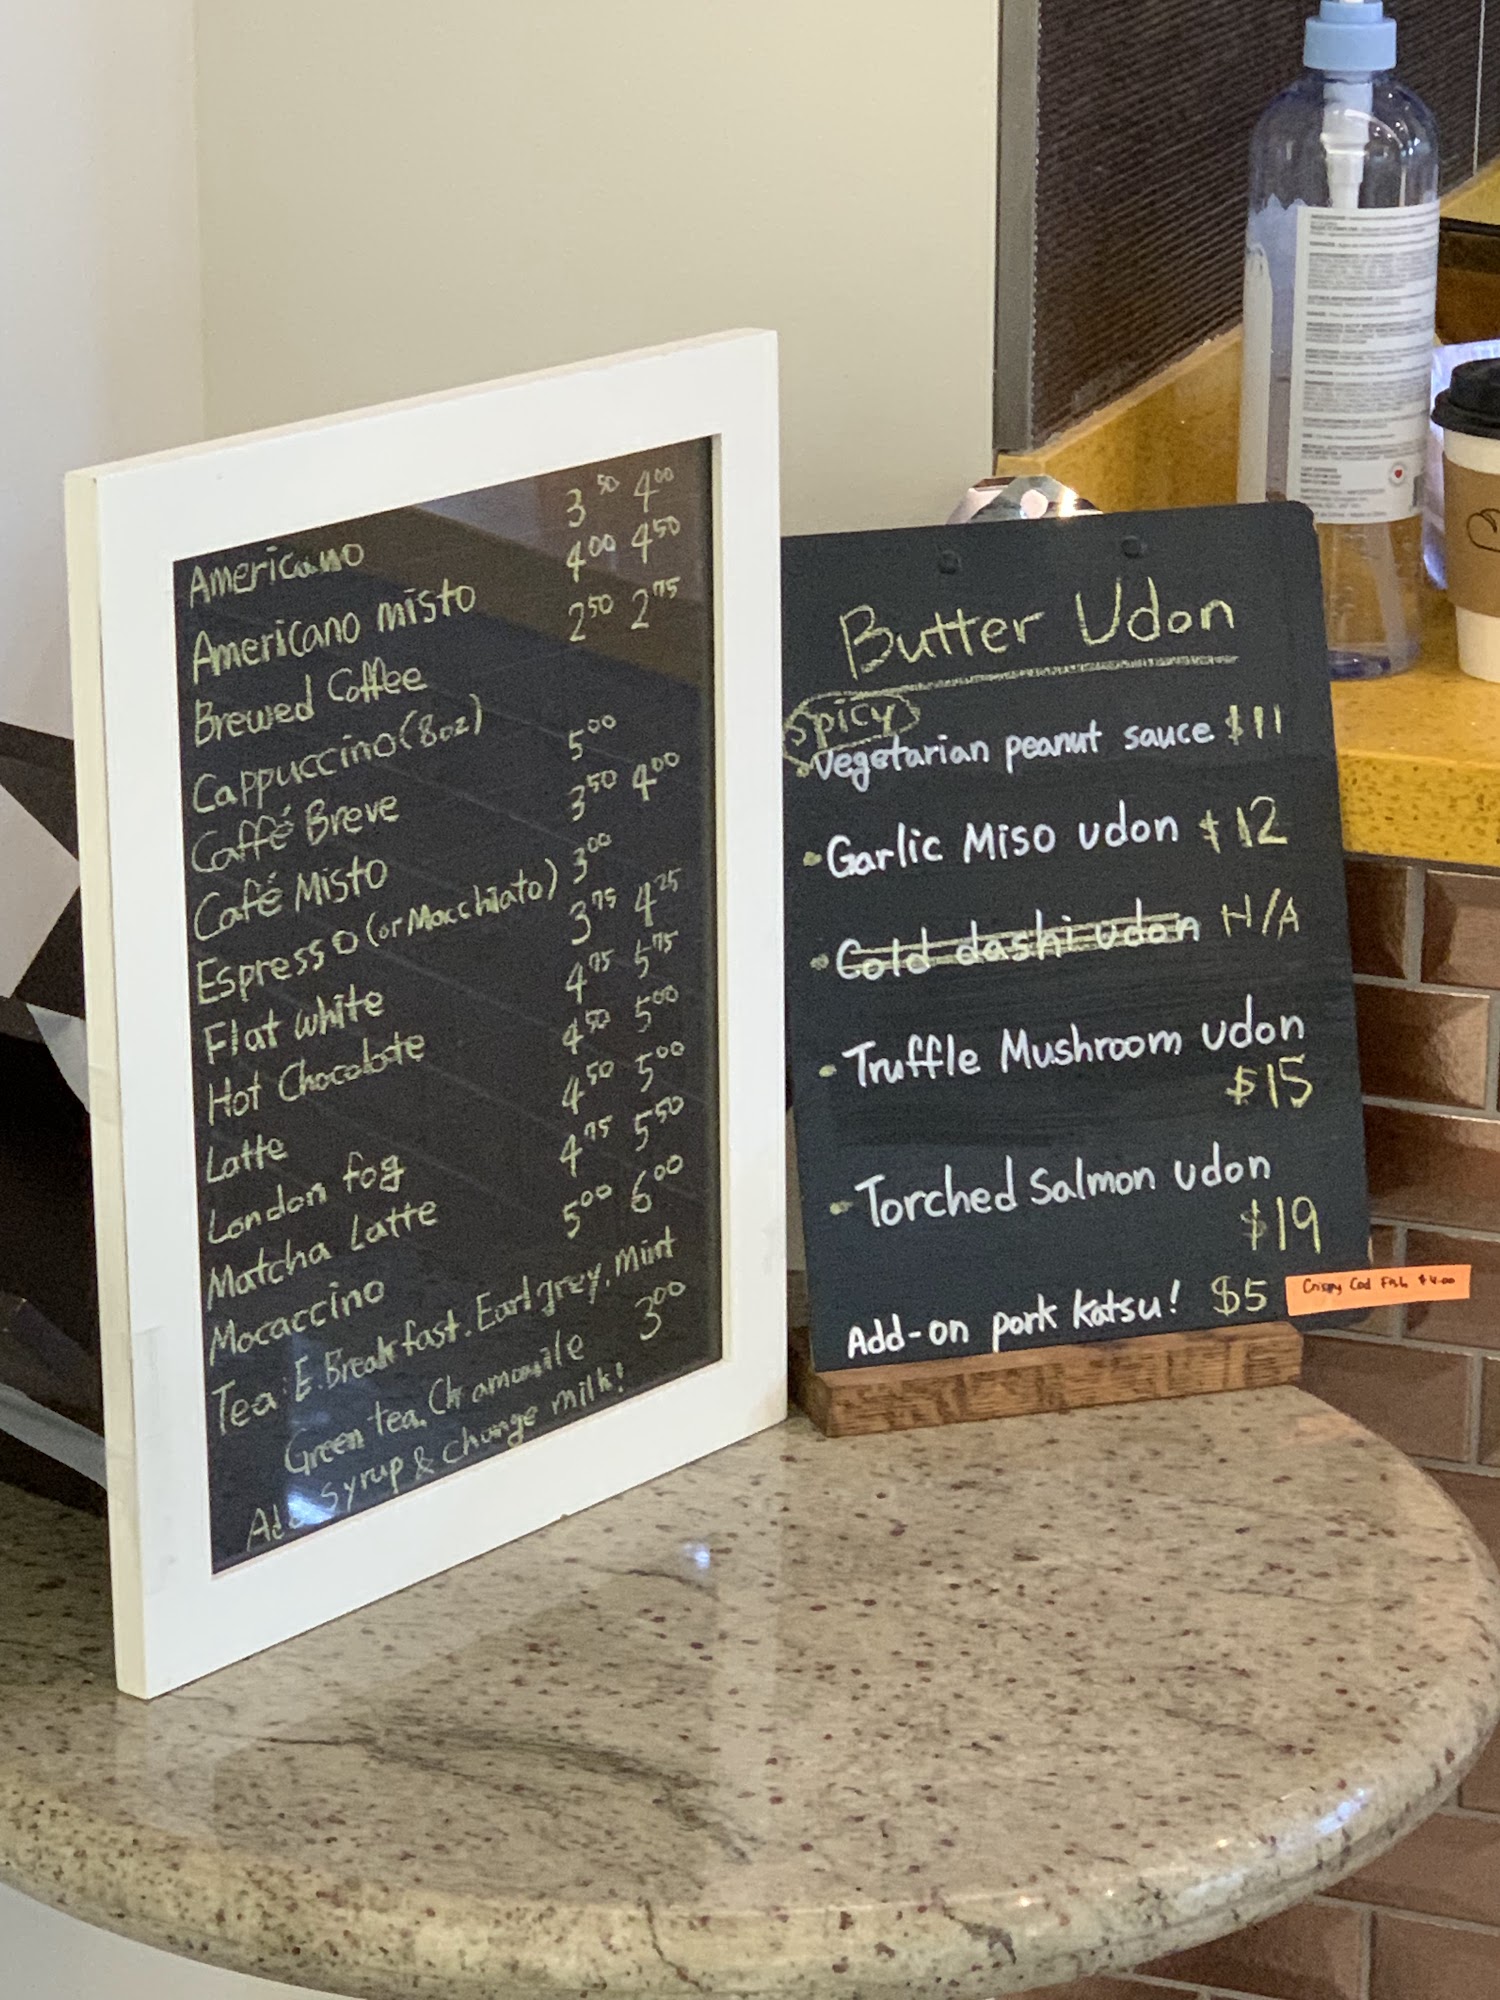 Americano 3 50 4 00
Americano misto 4 00 4 50
Brewed Coffee 2 50 2 75
Cappuccino (8oz)
Caffé Breve 5 00
Café Misto 3 50 4 00
Espresso (or Macchiato) 3 00
Flat white 3 75 4 25
Hot Chocolate 4 75 5 75
Latte 4 50 5 00
London fog 4 50 5 00
Matcha Latte 4 75 5 50
Mocaccino 5 00 6 00
Tea: E. Breakfast. Earl grey. Mint
Green tea. Chamomile 3 00
Add syrup & change milk!
Butter Udon
Spicy
Vegetarian peanut sauce $11
Garlic Miso udon $12
Cold dashi udon N/A
Truffle Mushroom udon
$15
Torched Salmon udon
$19
Add-on pork katsu! $5
Crispy Cod Fish $4.00